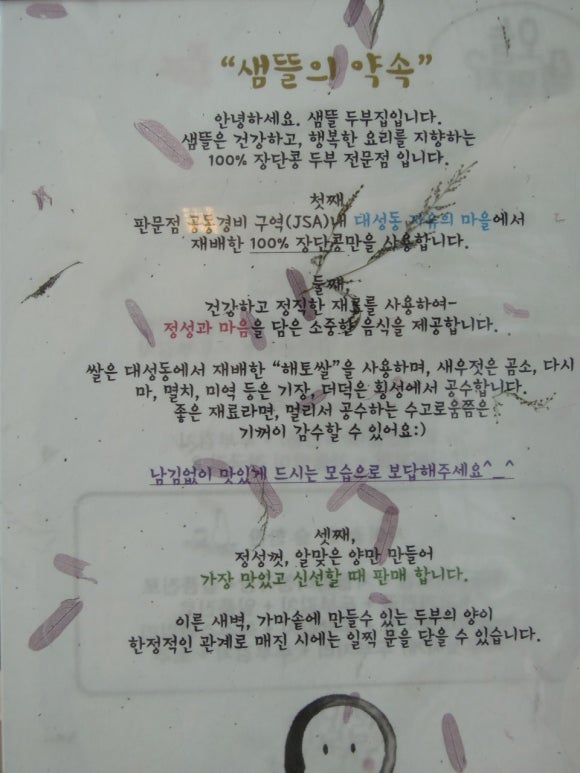 “샘뜰의 약속”
안녕하세요. 샘뜰 두부집입니다.
샘뜰은 건강하고, 행복한 요리를 지향하는
100% 장단콩 두부 전문점 입니다.
첫째,
판문점 공동경비 구역(JSA)내 대성동 자유의 마을에서
재배한 100% 장단콩만을 사용합니다.
둘째,
건강하고 정직한 재료를 사용하여-
정성과 마음을 담은 소중한 음식을 제공합니다.
쌀은 대성동에서 재배한 “해토쌀”을 사용하며, 새우젓은 곰소, 다시
마, 멸치, 미역 등은 기장, 더덕은 횡성에서 공수합니다.
좋은 재료라면, 멀리서 공수하는 수고로움쯤은
기꺼이 감수할 수 있어요:)
남김없이 맛있게 드시는 모습으로 보답해주세요^_^
셋째,
정성껏, 알맞은 양만 만들어
가장 맛있고 신선할 때 판매 합니다.
이른 새벽, 가마솥에 만들수 있는 두부의 양이
한정적인 관계로 매진 시에는 일찍 문을 닫을 수 있습니다.